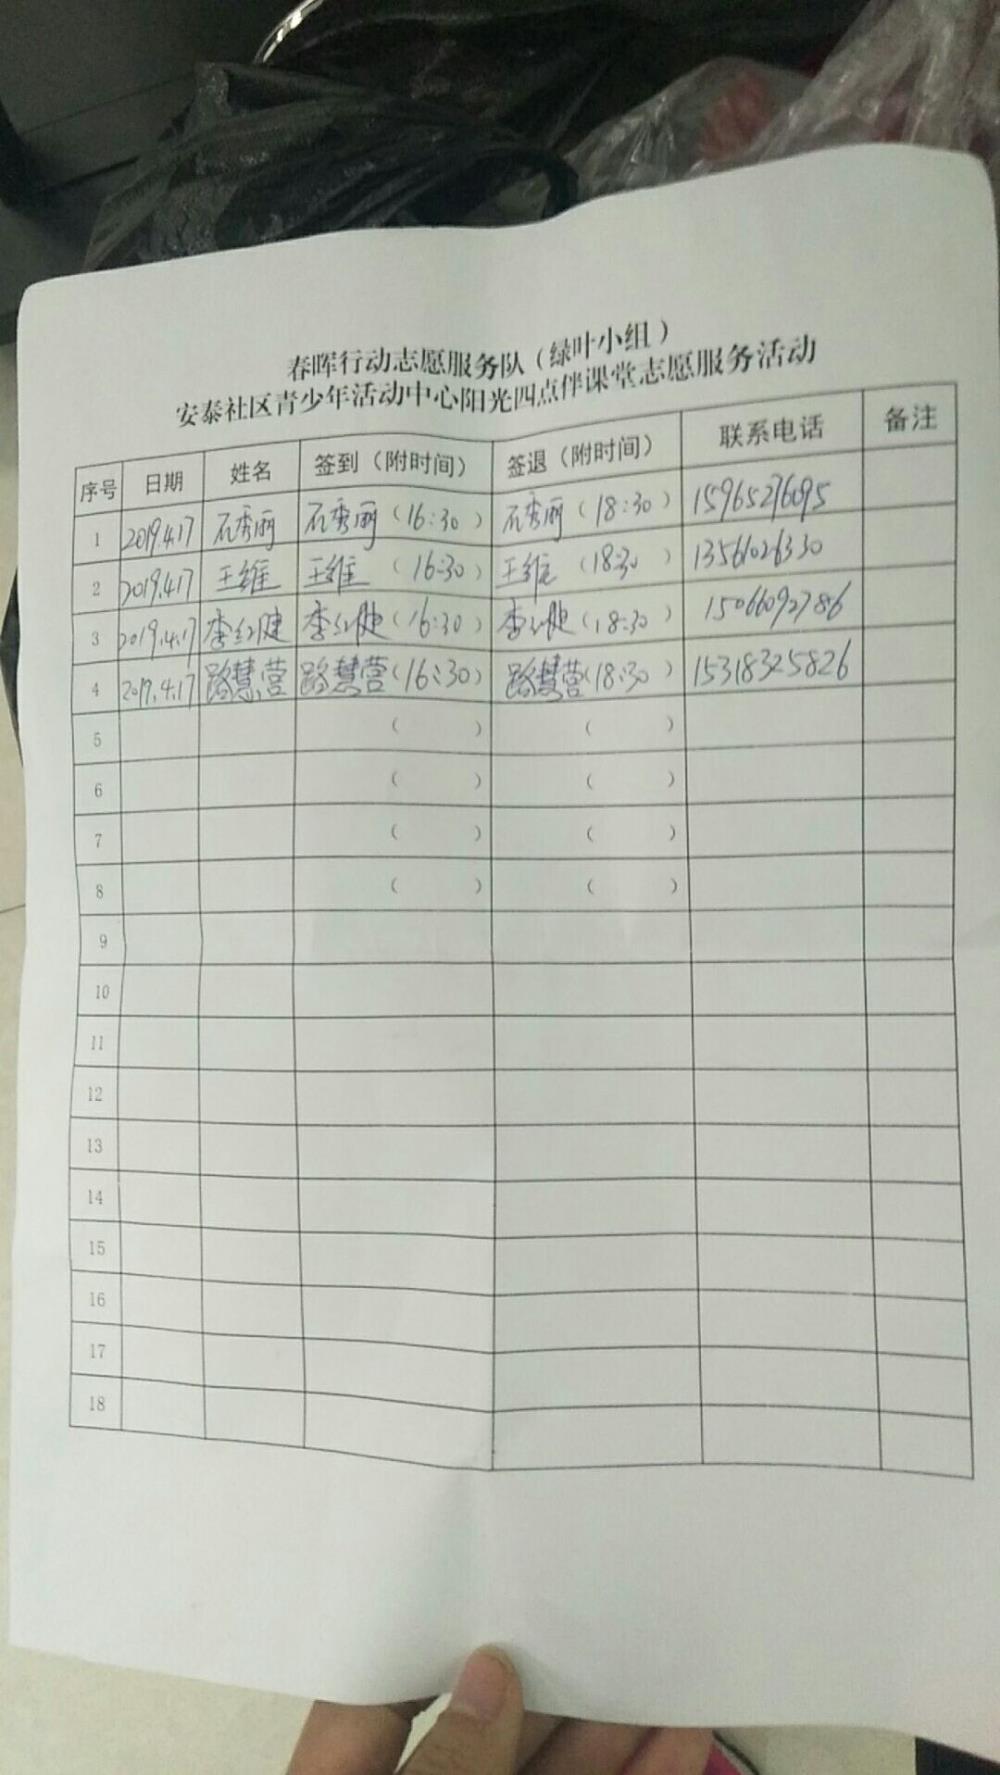 春晖行动志愿服务队（绿叶小组）
安泰社区青少年活动中心阳光四点伴课堂志愿服务活动
序号 日期 姓名 签到（附时间） 签退（附时间） 联系电话 备注
1 2019.4.17 石秀丽 石秀丽（16:30） 石秀丽（18:30） 15965276095
2 2019.4.17 王维 王维（16:30） 王维（18:30） 13561026330
3 2019.4.17 李红健 李红健（16:30） 李红健（18:30） 15066092786
4 2019.4.17 路慧营 路慧营（16:30） 路慧营（18:30） 15318325826
5 （ ） （ ）
6 （ ） （ ）
7 （ ） （ ）
8 （ ） （ ）
9
10
11
12
13
14
15
16
17
18